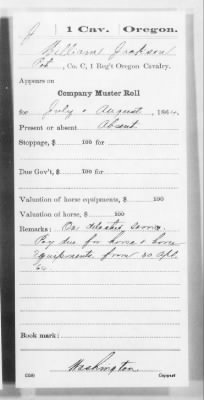 J | 1 Cav. | Oregon.
William Jackson
Pvt, Co. C, 1 Reg't Oregon Cavalry.
Appears on
Company Muster Roll
for July & August, 1864.
Present or absent Absent
Stoppage, $ 100 for
Due Gov't, $ 100 for
Valuation of horse equipments, $ 100
Valuation of horse, $ 100
Remarks: On detached service
Pay due for horse & horse
equipments from 30 Apl.
64
Book mark:
Washington
(358)
Copyist